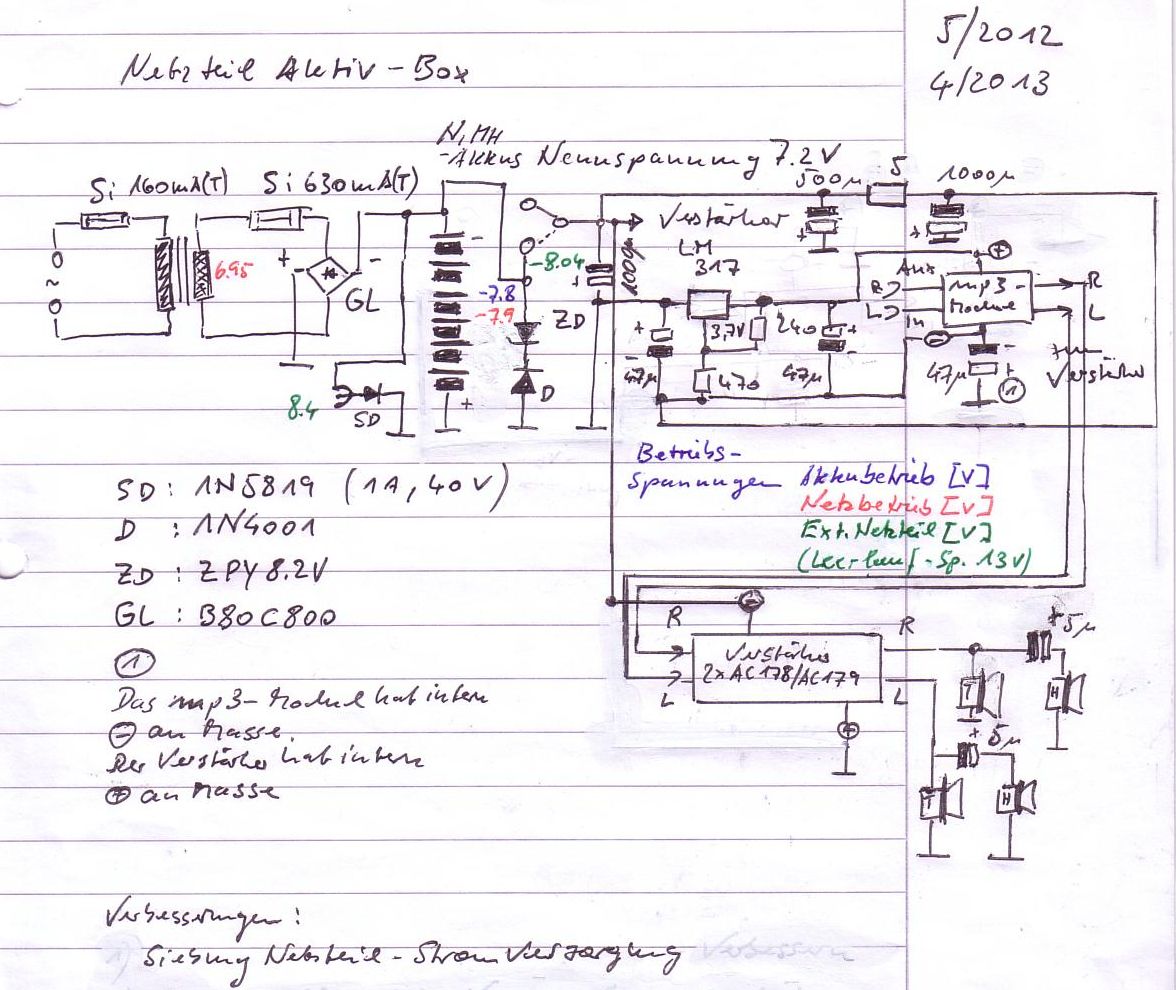 5/2012
4/2013
Netzteil Aktiv-Box
NiMH
-Akkus Nennspannung 7.2V
Si 160mA(T)
Si 630mA(T)
500µ
5
1000µ
+
-
-
Verstärker
LM
317
+
+
+
~
6.95
GL
-8.04
1000µ
+
-7.8
-7.9
ZD
3,7V
240
Aux
R
L
In
mp3-
Module
R
L
+
-
47µ
470
47µ
+
-
-
47µ
-
+
1
zum
Verstärker
8.4
SD
D
+
Betriebs-
spannungen
Akkubetrieb [V]
Netzbetrieb [V]
Ext. Netzteil [V]
(Leerlauf-Sp. 13V)
SD: 1N5819 (1A, 40V)
D : 1N4001
ZD : ZPY8.2V
GL : B80C800
-
R
R
Verstärker
2xAC178/AC179
L
L
+
+ 5µ
T
H
+ 5µ
T
H
1
Das mp3-Modul hat intern
- an Masse.
Der Verstärker hat intern
+ an Masse
Verbesserungen:
1) Siebung Netzteil-Stromversorgung verbessern